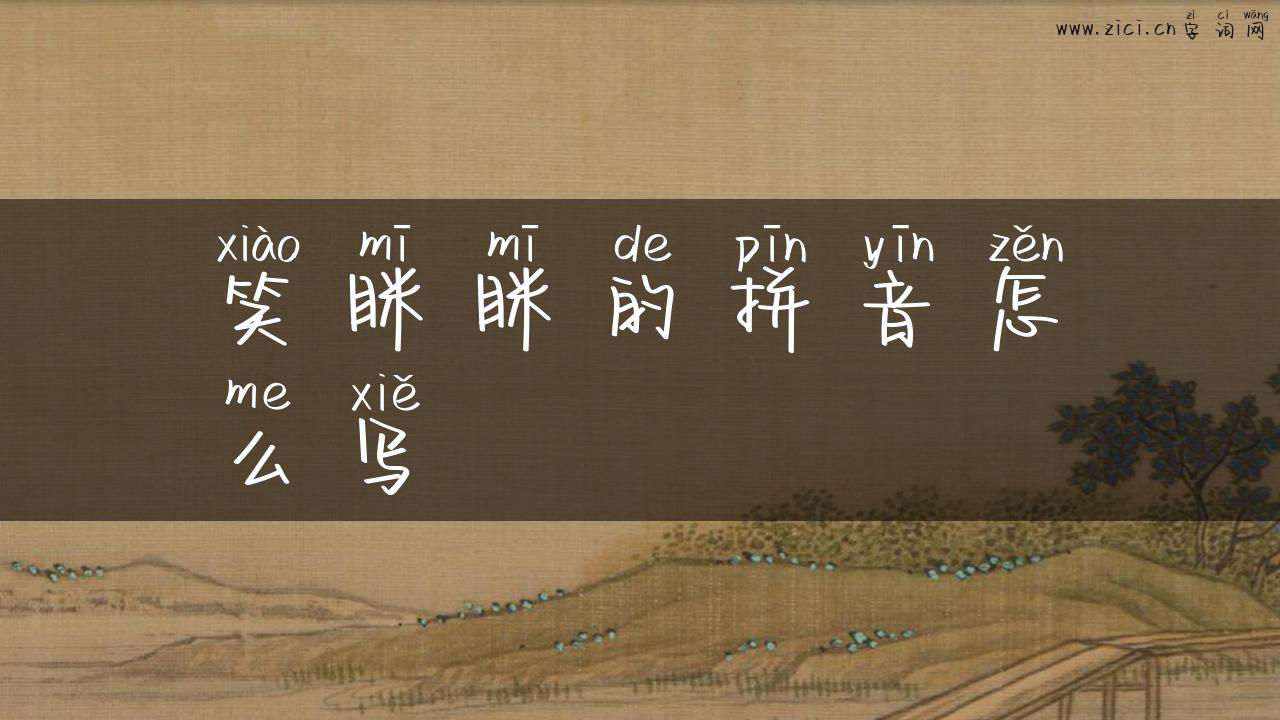 zì cí wǎng
www.zici.cn字词网
xiào mī mī de pīn yīn zěn
笑眯眯的拼音怎
me xiě
么写